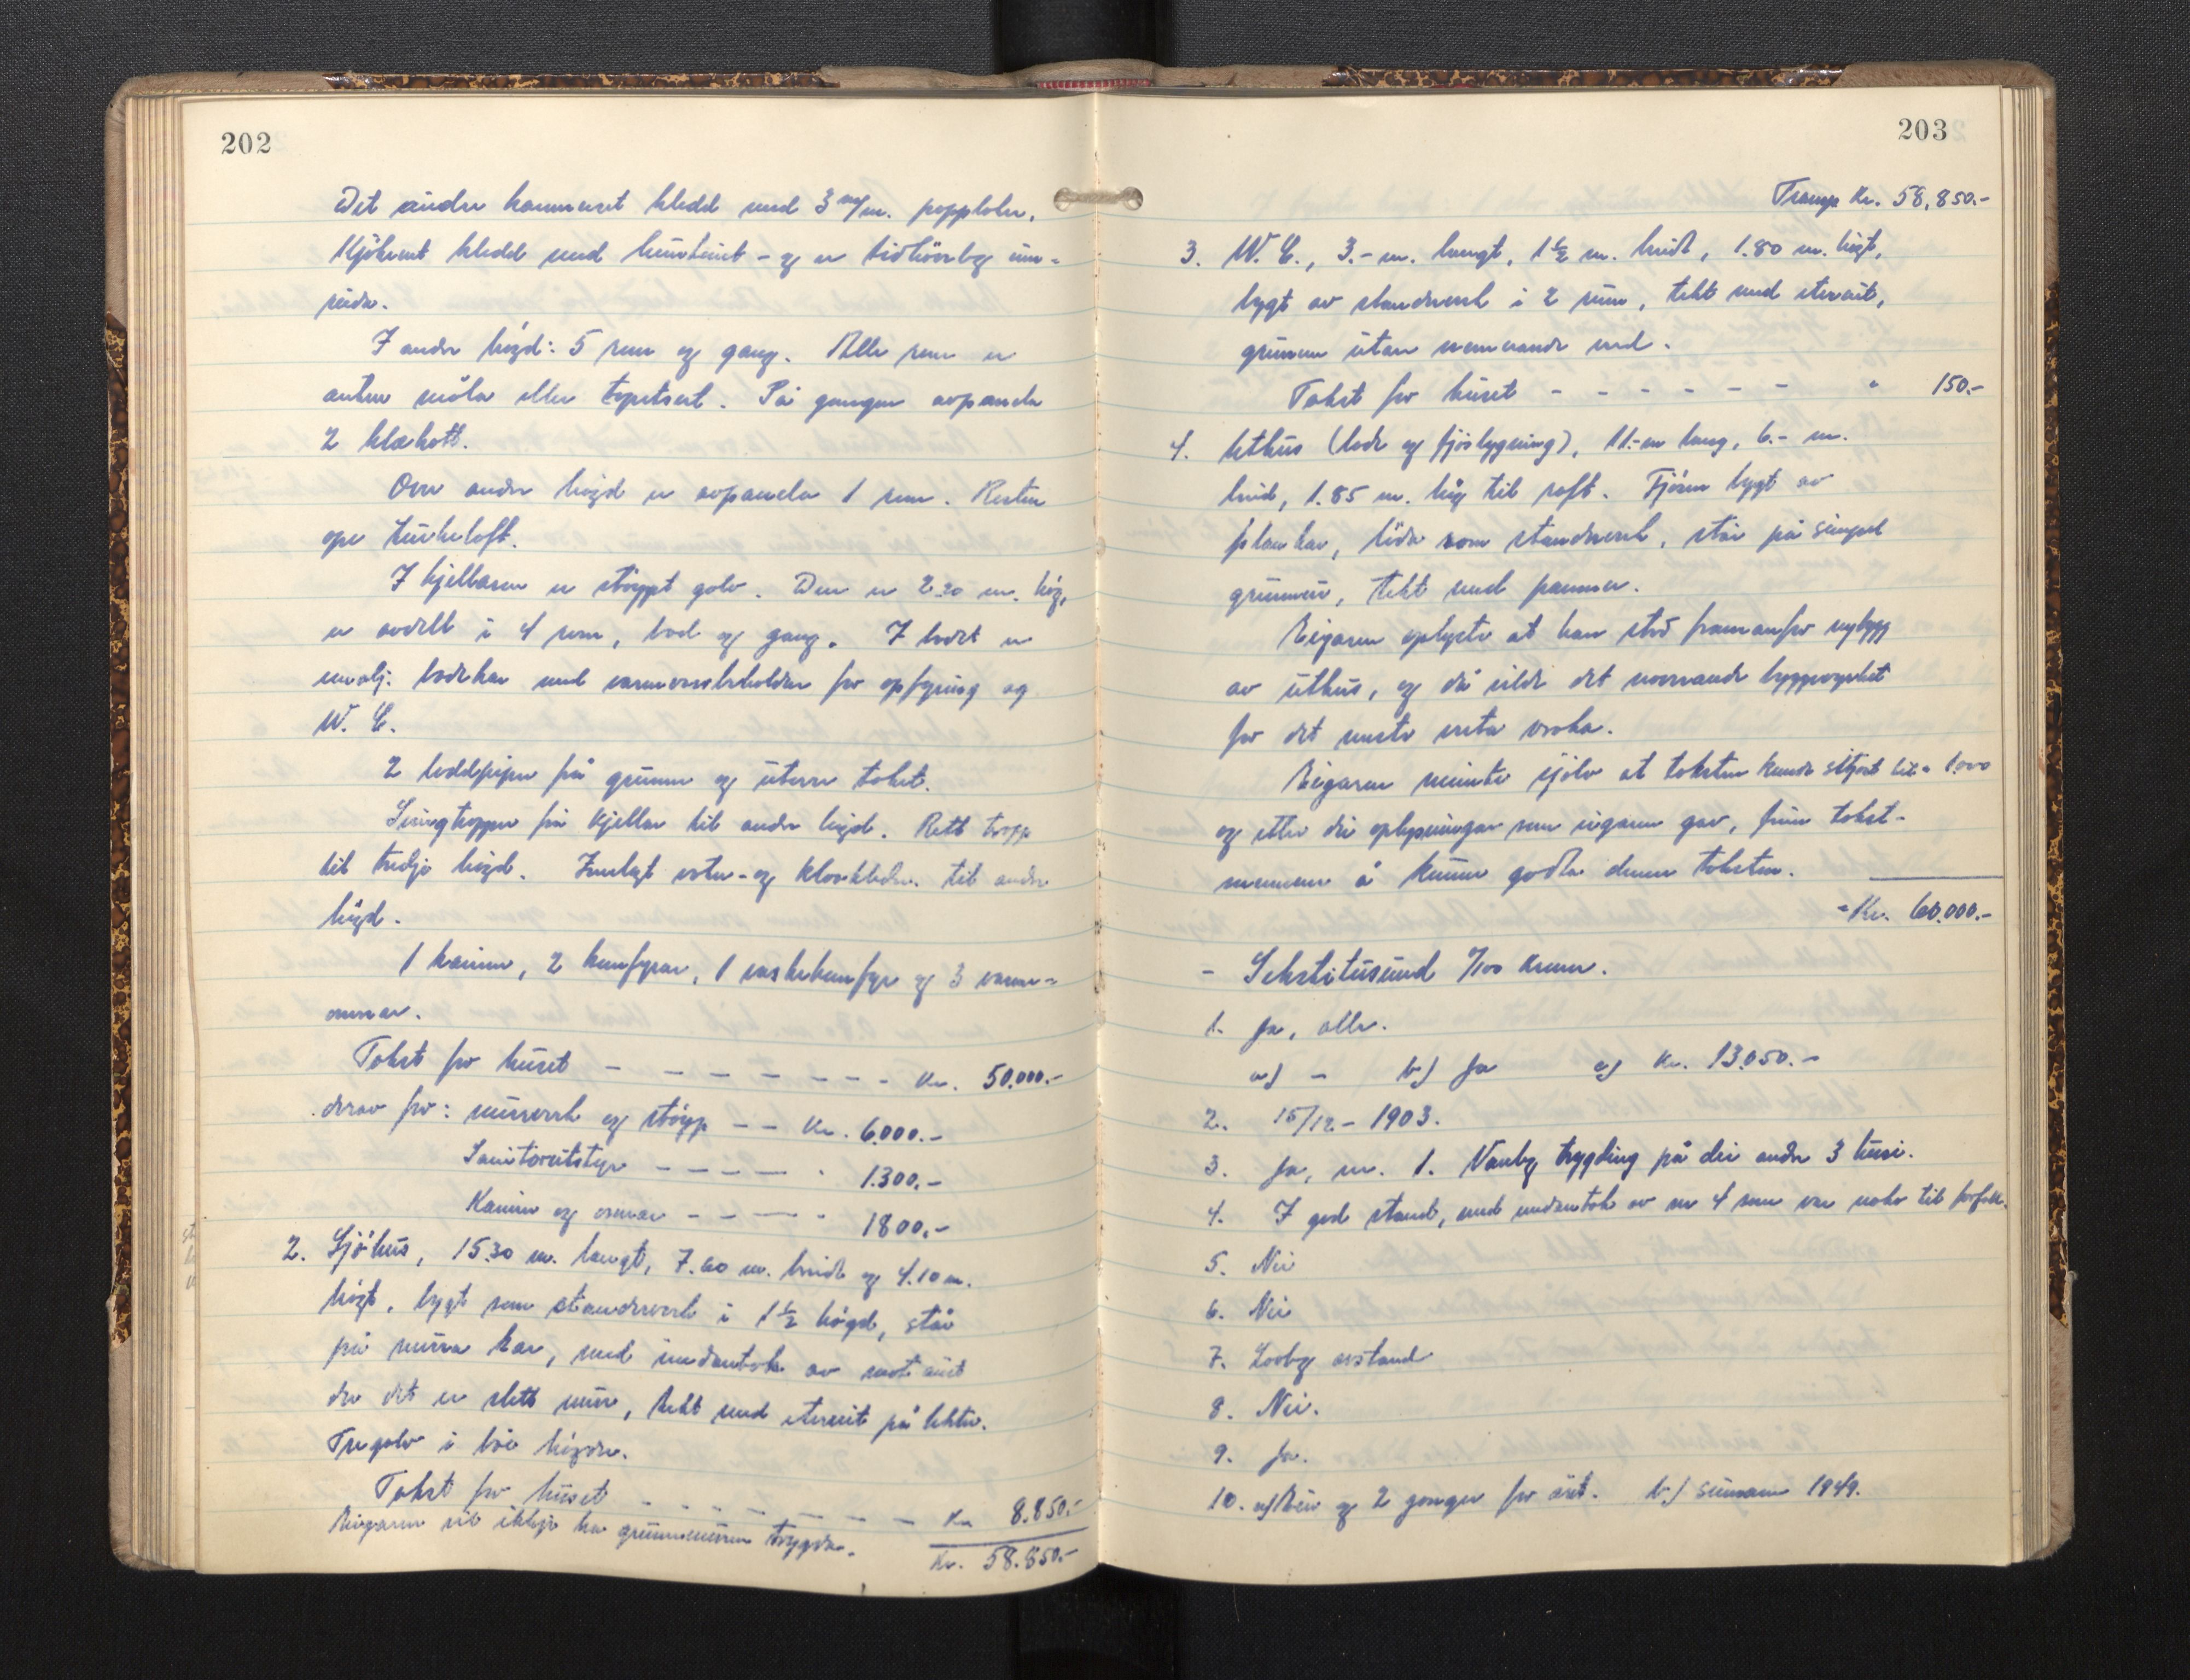 202
Det andre kammerset kledd med 3 m/m. papplater.
Kjökenet kledd med huntonit - og er tidhöveleg inn-
reidd.
I andre högd: 5 rom og gang. Alle rom er
anten måla eller tapetsert. På gangen avpanela
2 klækott.
Over andre högd er avpanela 1 rom. Resten
ope turkeloft.
I kjellaren er stöypt golv. Den er 2.20 m. hög,
er avdelt i 4 rom, bad og gang. I badet er
emalj. badekar med varmvassbeholder for opfyring og
W. C.
2 loddpiper på grunn og uterm taket.
Svingtropper frå kjellar til andre högd. Rett tropp
til tredje högd. Innlagt vatn- og kloakkledn. til andre
högd.
1 kamin, 2 komfyrar, 1 vaskekomfyr og 3 varme-
omnar.
Takst for huset - - - - - - - - Kr. 50.000.-
derav for: murverk og stöyp - - Kr. 6.000.-
Sanitærutstyr - - - - " 1.300.-
Kamin og omnar - - - - " 1800.-
2. Sjöhus, 15.30 m. langt, 7.60 m. breidt og 4.10 m.
högt, bygt som standerverk i 1 1/2 högd, står
på mura kar, med undantak av mot aust
der det er slett mur, tekt med eternit på lekter.
Tregolv i båe högder.
Takst for huset - - - - - - - - Kr 8.850.-
Eigaren vil ikkje ha grunnmuren trygda.
Kr. 58.850.-
203
Transp Kr. 58,850.-
3. W. C., 3.- m. langt, 1 1/2 m. breidt, 1.80 m. högt,
bygt av standerverk i 2 rom, tekt med eternit,
grunnen utan nemnande verd.
Takst for huset - - - - - - " 150.-
4. Uthus (lade og fjösbygning), 11.- m lang, 6.- m.
breid, 1.85 m. hög til raft. Fjösen bygt av
plankar, löda som standerverk, står på simpel
grunnmur, tekt med pannor.
Eigaren oplyste at han stod framanfor nybygg
av uthus, og då vilde det noverande byggverket
for det meste verta vraka.
Eigaren meinte sjölv at taksten kunde setjast til " 1.000
og etter dei oplysningar som eigaren gav, finn takst-
mennene å kunne godta denne taksten.
= Kr. 60.000.-
- Sekstitusund 0/100 kroner.
1. Ja, alle.
a) - b) Ja c) Kr. 13.050.-
2. 15/12 - 1903.
3. Ja, nr. 1. Vanleg trygding på dei andre 3 husi.
4. I god stand, med undantak av nr 4 som var noko til forfall.
5. Nei
6. Nei
7. Lovleg avstand
8. Nei.
9. Ja.
10. a) Ein og 2 gonger for året. b) sumaren 1949.